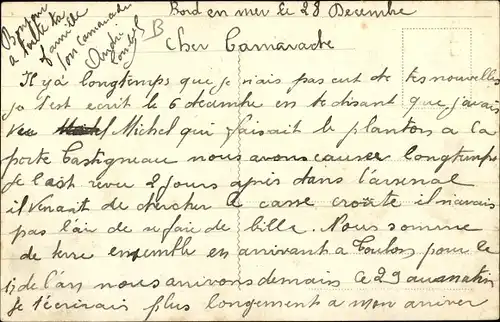 Bonjour
a toute ta
famille
ton camarade
Bord en mer le 28 Decembre
Cher Camarade
Il y a longtemps que je n'ais pas eut de tes nouvelles
je t'est ecrit le 6 decembre en te disant que j'avais
veu Michel qui faisait le planton a la
porte Castigneau nous avons causer longtemps
Je l'ait reveu 2 jours après dans l'arsenal
il venait de chercher le casse croûte il n'avais
pas l'air de se faire de bille. Nous somme
de terre ensemble en arrivant a Toulon pour le
1 de l'an nous arrivons demais Ce 29 au matin
Je t'écrirais plus longement a mon arriver